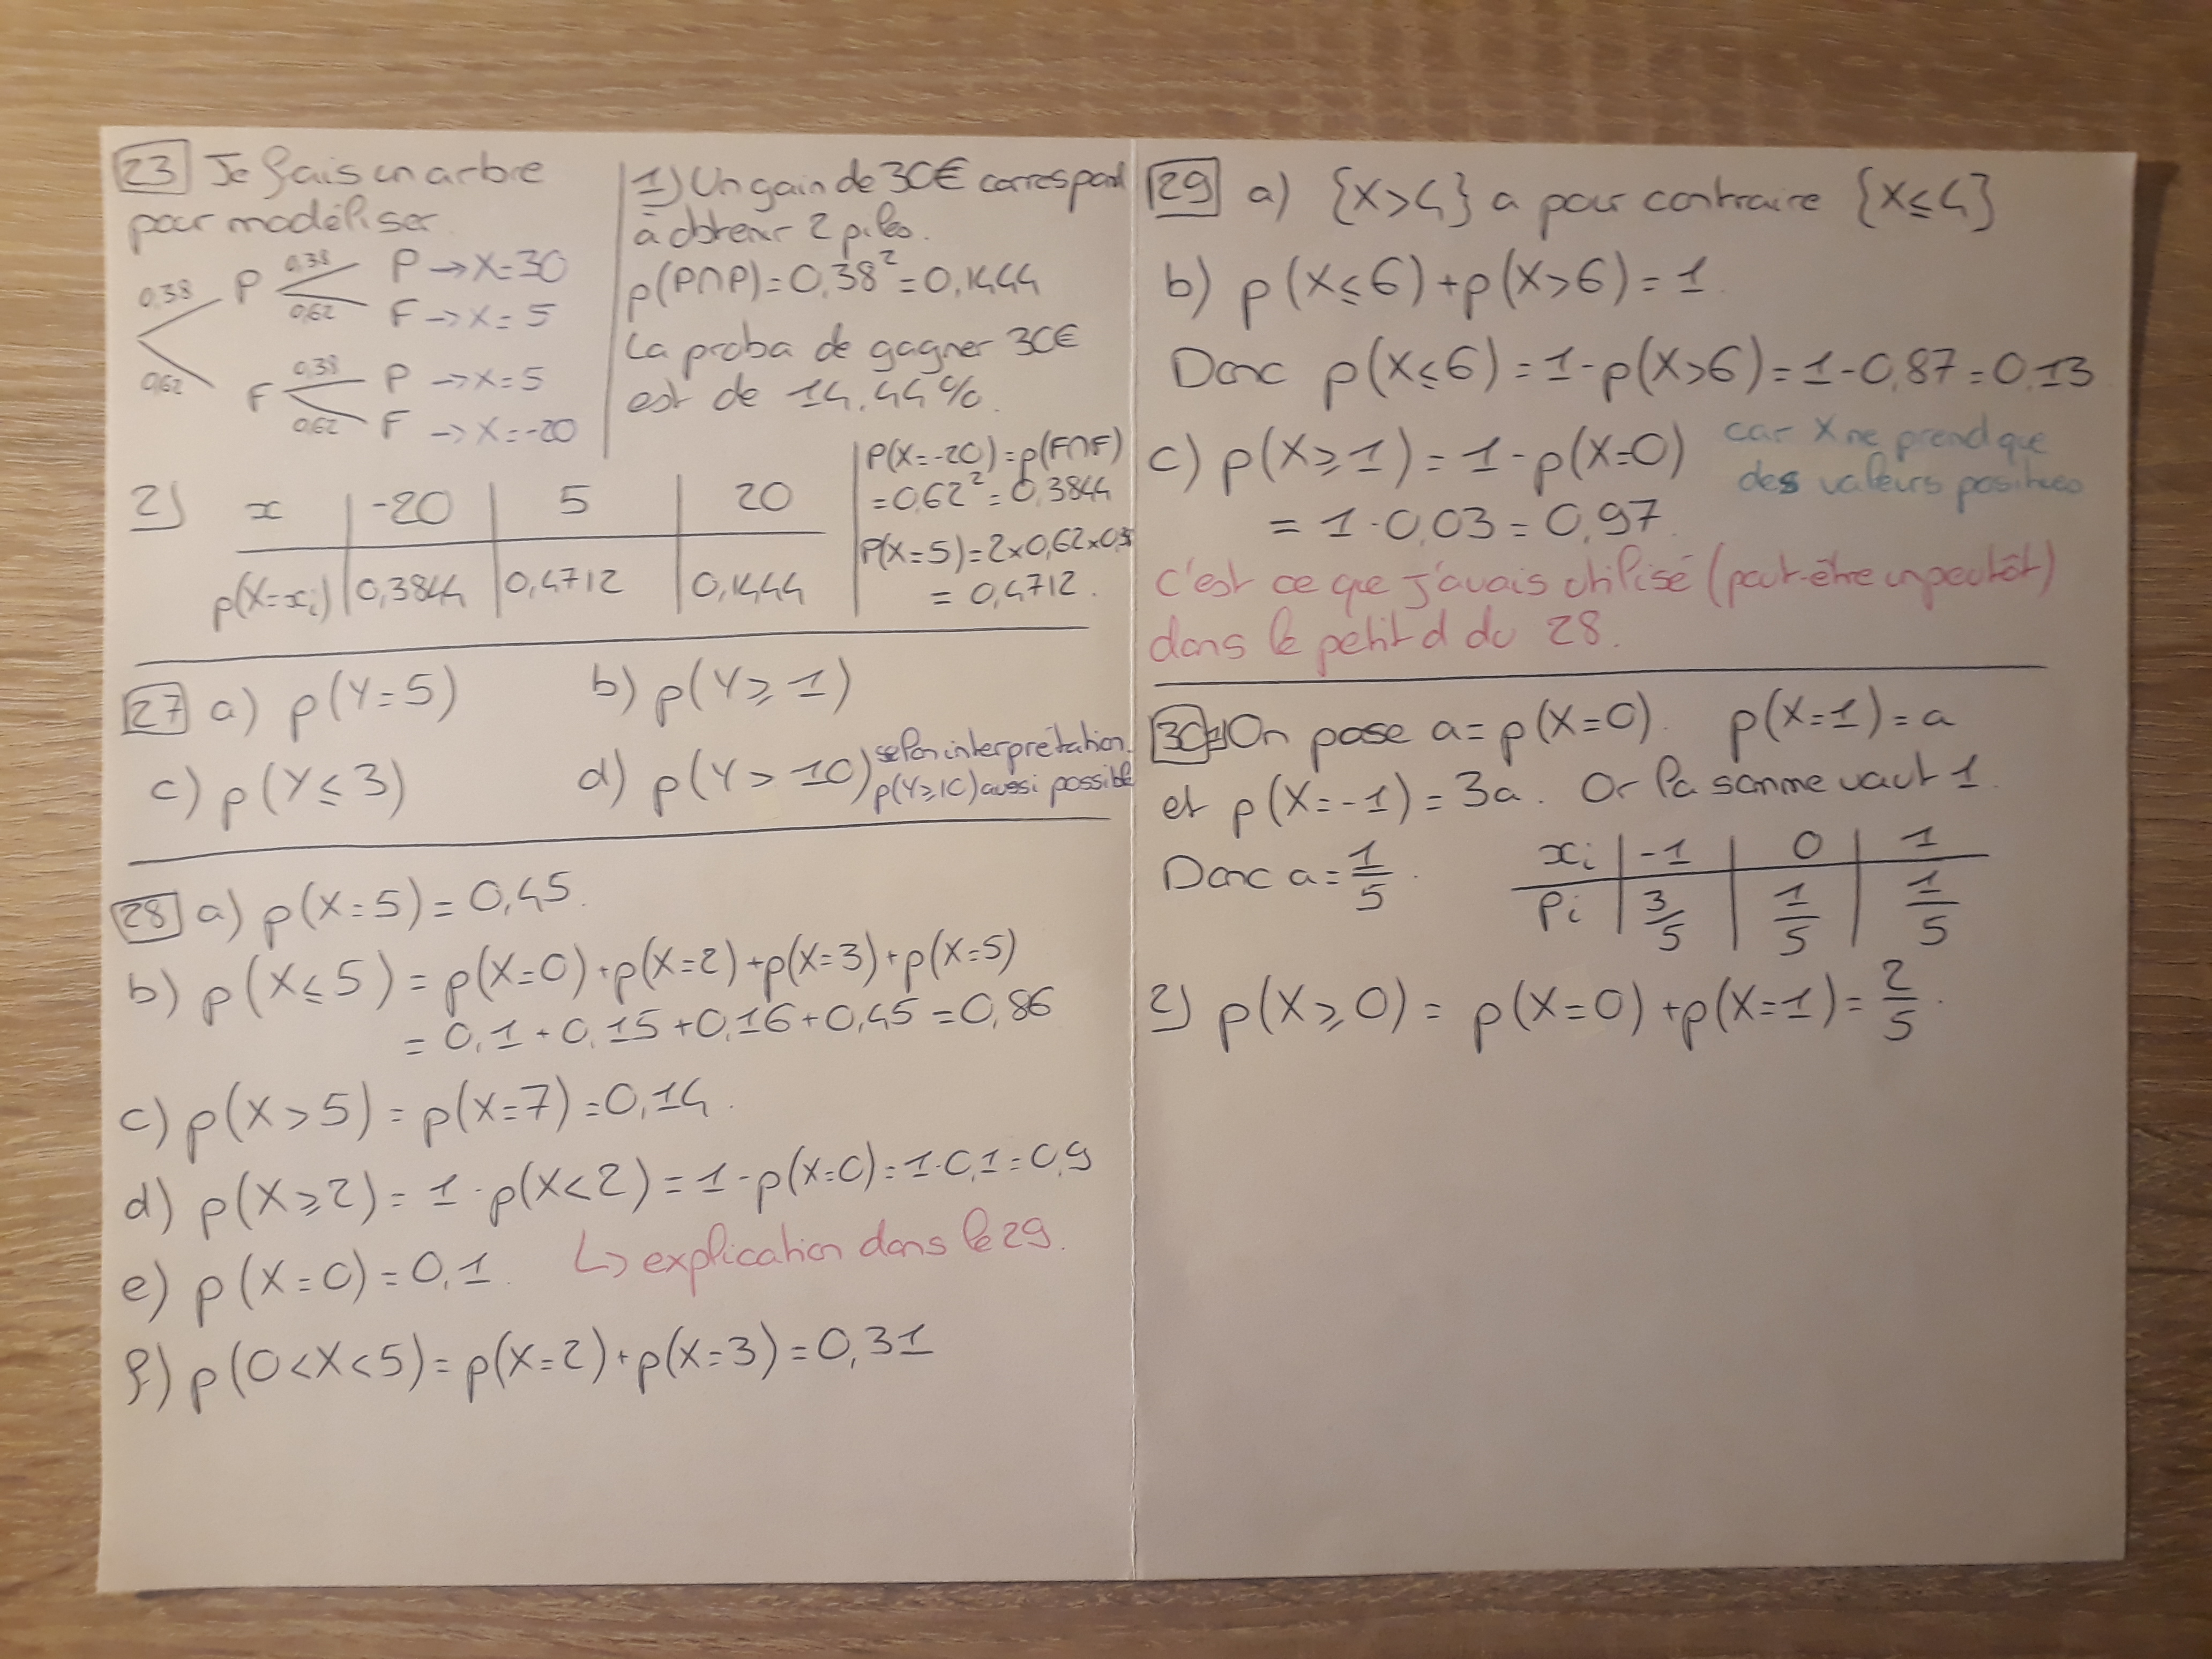 23 Je fais un arbre
pour modéliser.
0,38 P 0,38 P → X=30
0,62 F → X=5
0,62 F 0,38 P → X=5
0,62 F → X=-20
1) Un gain de 30€ correspond
à obtenir 2 piles.
p(P∩P)=0,38²=0,1444
La proba de gagner 30€
est de 14,44%.
2) x | -20 | 5 | 20
p(X=xi) | 0,3844 | 0,4712 | 0,1444
P(X=-20)=p(F∩F)
=0,62²=0,3844
P(X=5)=2×0,62×0,38
= 0,4712.
27 a) p(Y=5) b) p(Y⩾1)
c) p(Y⩽3) d) p(Y>10) selon interprétation.
p(Y⩾10) aussi possible
28 a) p(X=5) = 0,45.
b) p(X⩽5) = p(X=0)+p(X=2)+p(X=3)+p(X=5)
= 0,1+0,15+0,16+0,45=0,86
c) p(X>5) = p(X=7)=0,14.
d) p(X⩾2) = 1-p(X<2) = 1-p(X=0)=1-0,1=0,9
↳ explication dans le 29.
e) p(X=0)=0,1.
f) p(0<X<5)=p(X=2)+p(X=3)=0,31
29 a) {X>4} a pour contraire {X⩽4}
b) p(X⩽6)+p(X>6)=1.
Donc p(X⩽6)=1-p(X>6)=1-0,87=0,13
c) p(X⩾1)=1-p(X=0) car X ne prend que
des valeurs positives
= 1-0,03=0,97.
c'est ce que j'avais utilisé (peut-être un peu tôt)
dans le petit d du 28.
30 1) On pose a=p(X=0). p(X=1)=a
et p(X=-1)=3a. Or la somme vaut 1.
Donc a=1/5.
xi | -1 | 0 | 1
Pi | 3/5 | 1/5 | 1/5
2) p(X⩾0) = p(X=0)+p(X=1)=2/5.